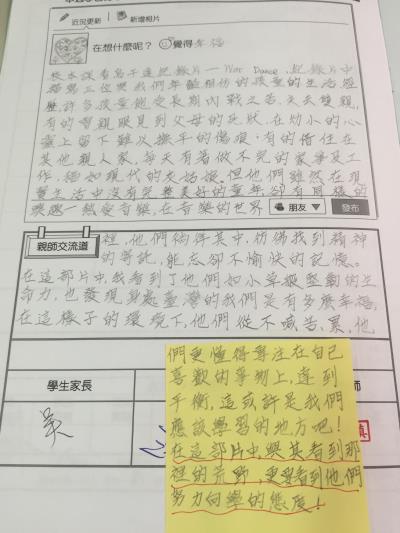 近況更新 新增相片
在想什麼呢？ 覺得幸福
校本課看烏干達紀錄片—War Dance，紀錄片中
描寫三位與我們年齡相仿的孩童的生活遊
歷許多孩童飽受長期內戰之苦，失去雙親，
有的曾親眼見到父母的死狀，在幼小的心
靈上留下難以撫平的傷痕，有的借住在
其他親人家，每天有著做不完的家事及工
作，猶如現代的灰姑娘。但他們雖然在現
實生活中沒有完整美好的童年，卻有同樣的
興趣—熱愛音樂，在音樂的世界
朋友 發布
親師交流道
裡，他們徜徉其中，彷彿找到精神
的寄託，能忘卻不愉快的記憶。
在這部片中，我看到了他們如小草般堅韌的生
命力，也發現身處臺灣的我們是有多麼幸福，
在這樣子的環境下，他們從不喊苦、累，他
們更懂得專注在自己
喜歡的事物上，達到
平衡，這或許是我們
應該學習的地方吧！
在這部片中，與其看到那
裡的荒野，更要看到他們
努力向學的態度！
學生家長 師
吳